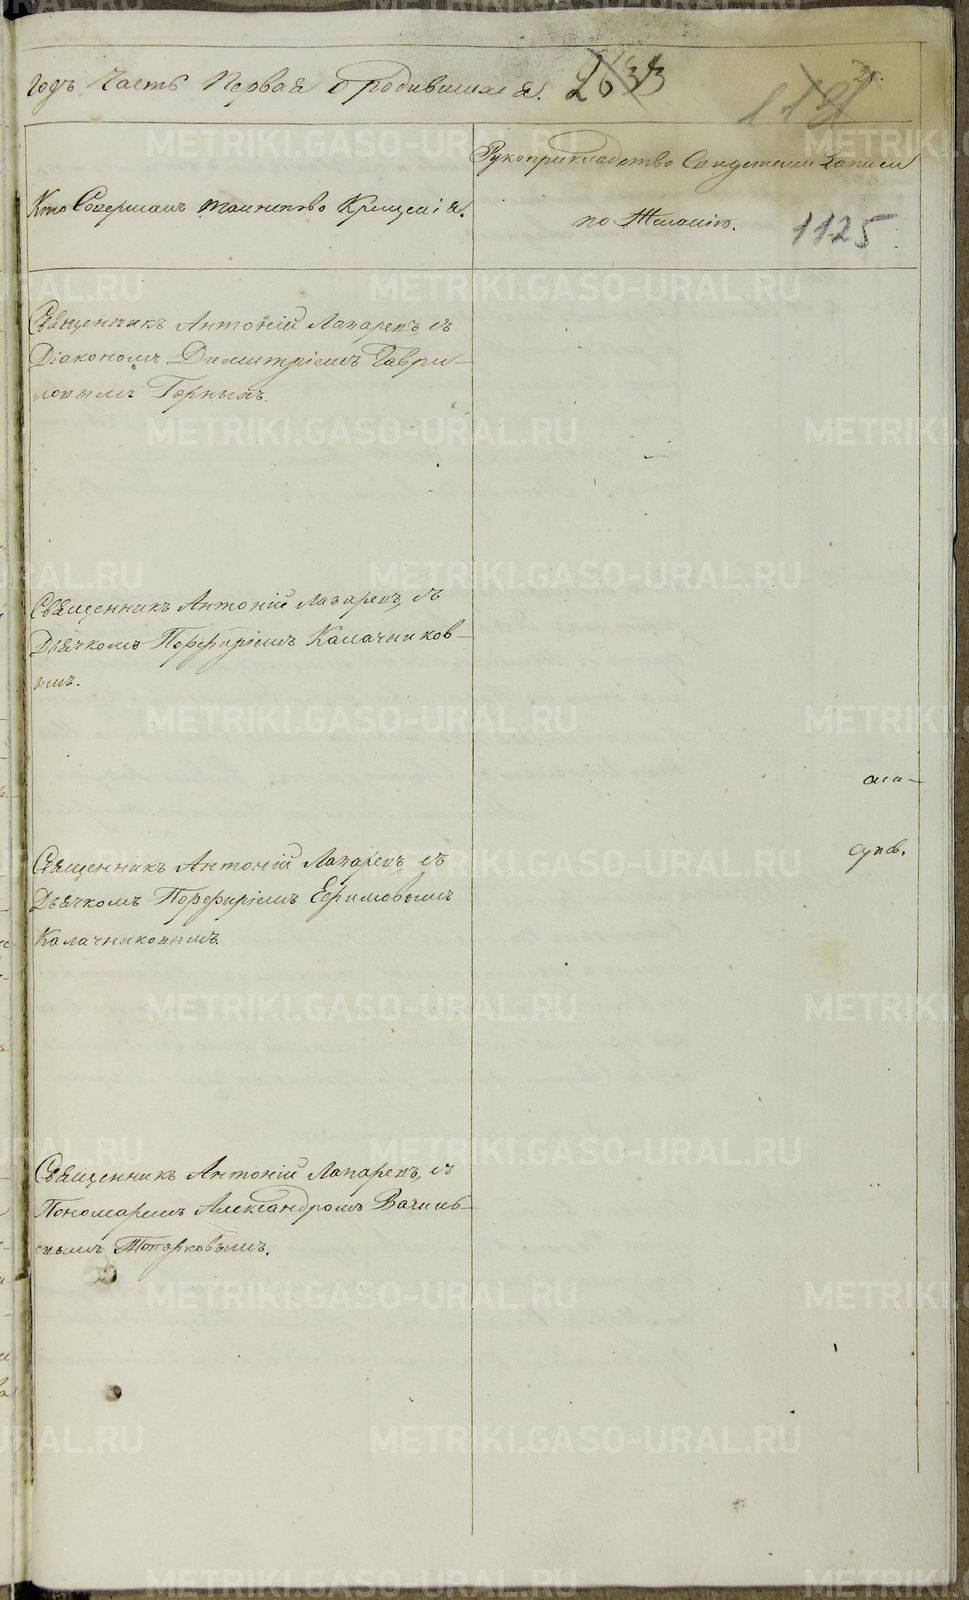 годъ Часть Первая о родившихся.
21.
Кто Совершалъ таинство Крещенія.
Рукоприкладство Свидетелей Записи
по Желанію.
1125
Священникъ Антоній Лапаревъ, съ
Діакономъ Димитріемъ Гаври-
ловымъ Горныхъ.
Священникъ Антоній Лапаревъ, съ
Дьячкомъ Порфиріемъ Калачников-
ымъ.
Священникъ Антоній Лапаревъ, съ
Дьячкомъ Порфиріемъ Ефимовымъ
Калачниковымъ.
Священникъ Антоній Лапаревъ, съ
Пономаремъ Александромъ Василь-
евымъ Топорковымъ.
METRIKI.GASO-URAL.RU